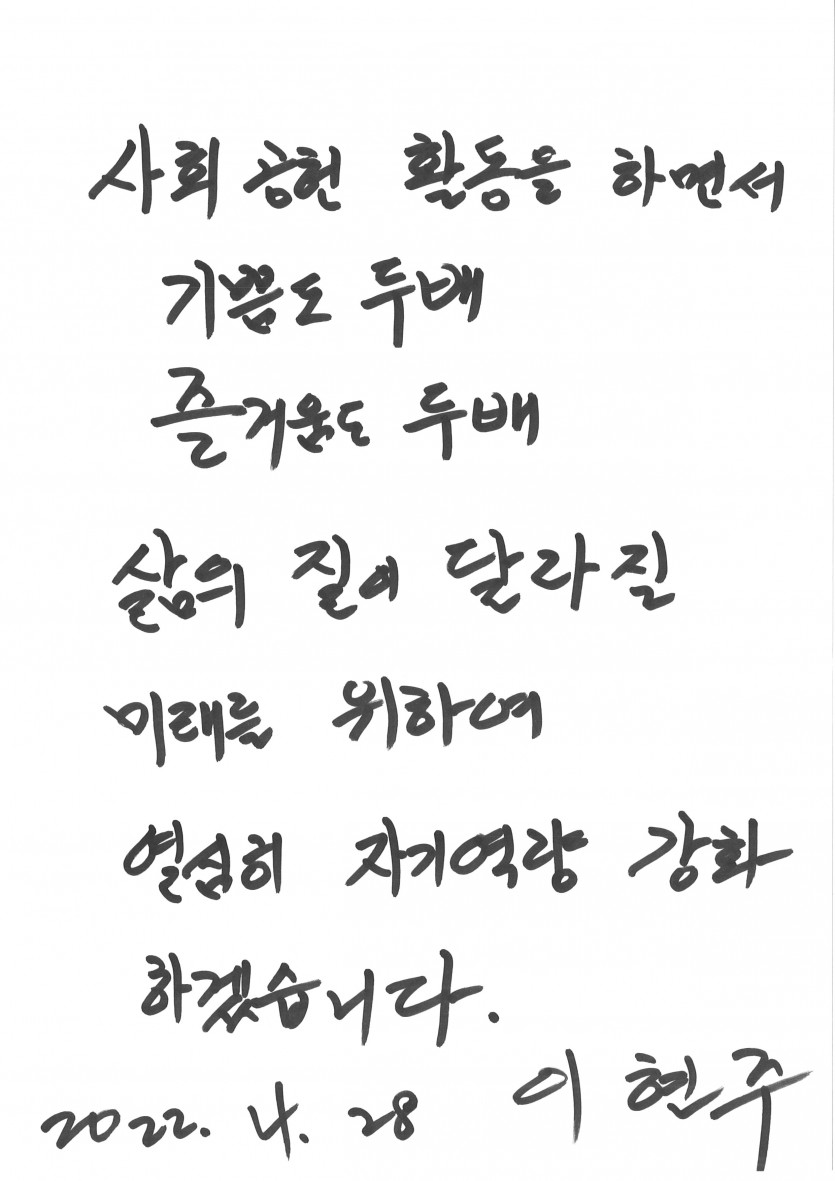 사회 공헌 활동을 하면서
기쁨도 두배
즐거움도 두배
삶의 질이 달라질
미래를 위하여
열심히 자기역량 강화
하겠습니다.
2022. 4. 28 이현주